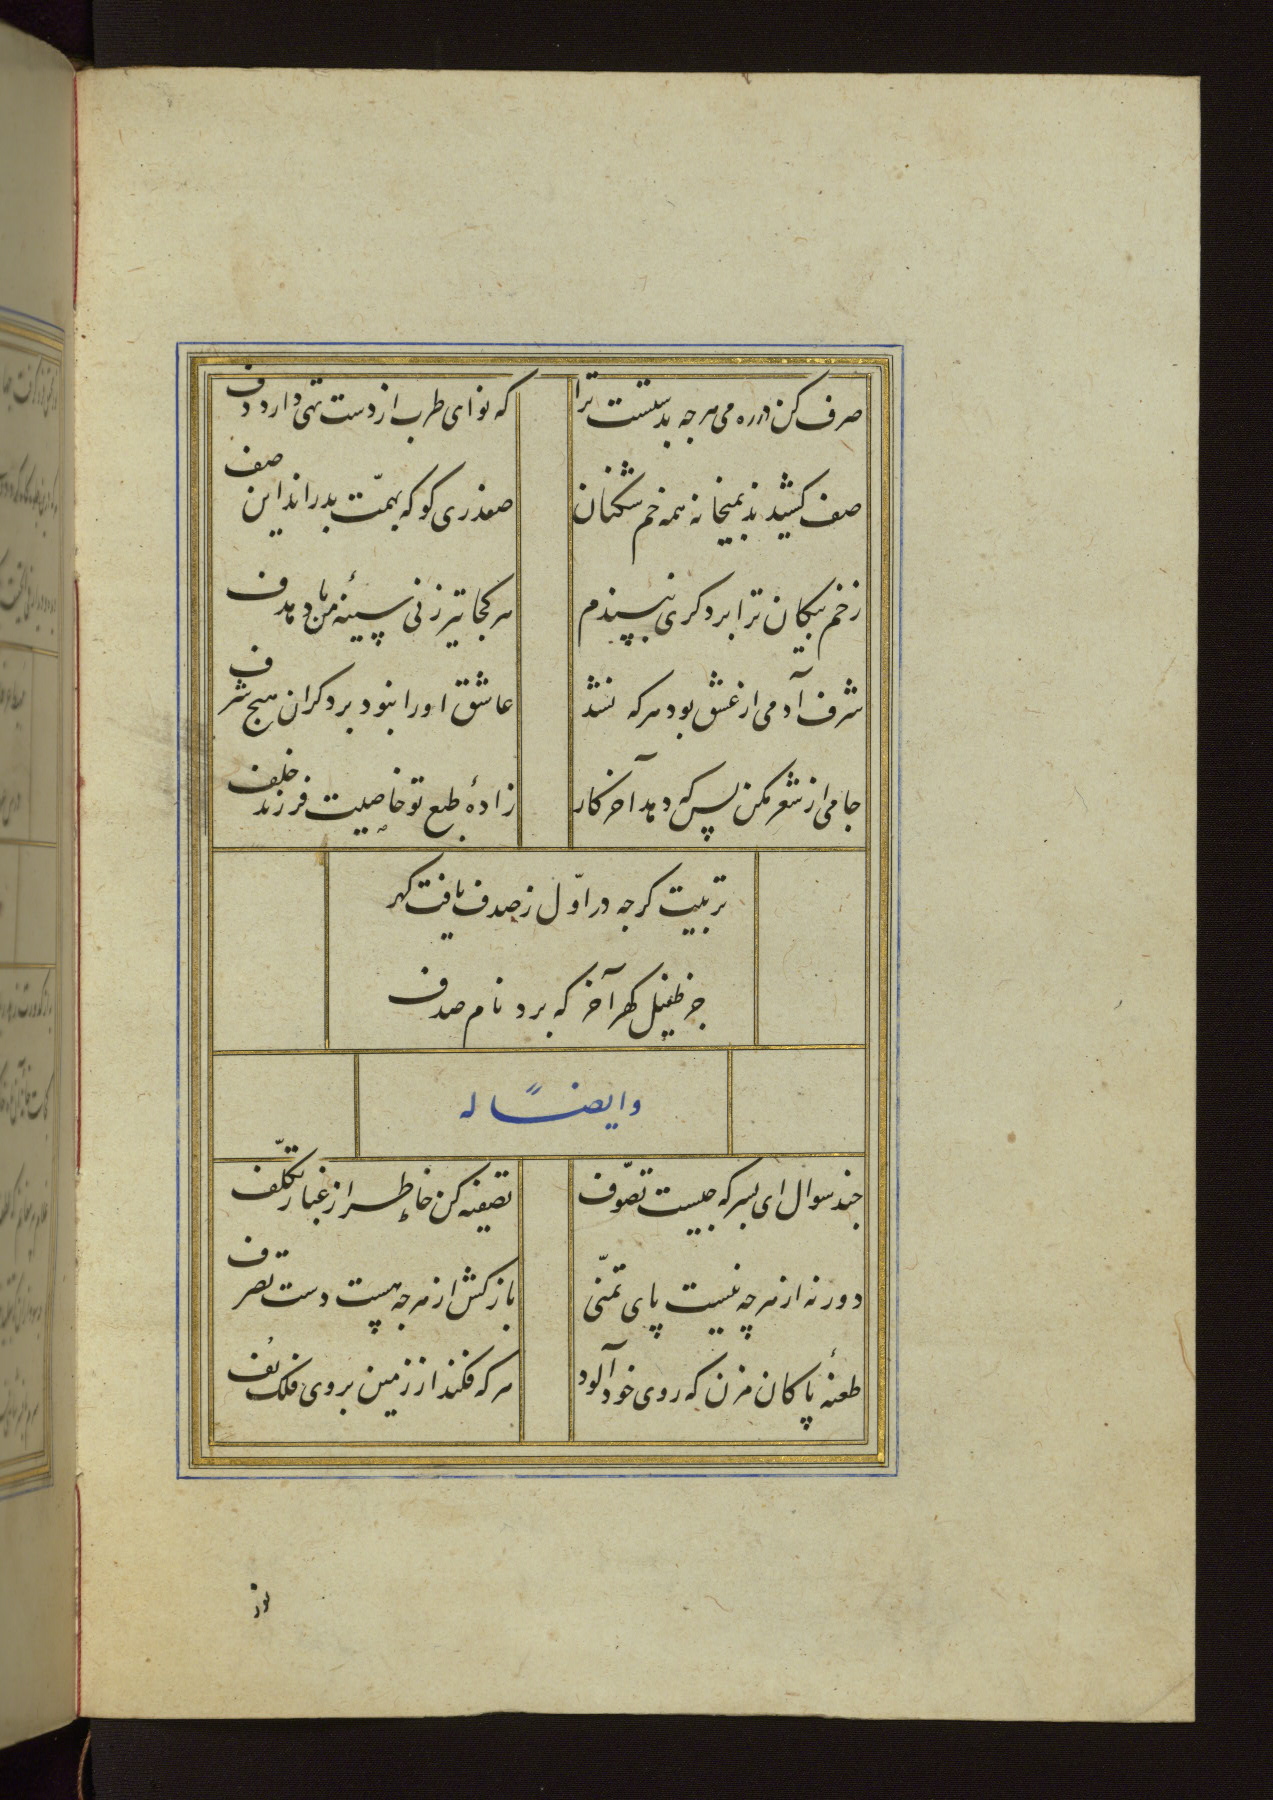 صرف کن در ره می هرجه بدستست ترا
که نوای طرب از دست تهی دارد دف
صف کشیدند بمیخانه همه خم شکنان
صفدری کو که بهمّت بدراند این صف
زخم پیکان ترا بر دکری نپسندم
هر کجا تیر زنی سینهٔ من باد هدف
شرف آدمی از عشق بود هرکه نشد
عاشق اورا نبود بر دکران هیج شرف
جامی از شعر مکن بس که دهد آخر کار
زادهٔ طبع تو خاصیت فرزند خلف
تربیت کرجه در اوّل ز صدف یافت کهر
جز طفیل کهر آخر که برد نام صدف
وایضاً له
جند سوال ای پسر که جیست تصوّف
تصفیه کن خاطر از غبار تکلّف
دور نه از هرچه نیست پای تمنّی
باز کش از هرجه هست دست تصرف
طعنهٔ پاکان مزن که روی خود آلود
هرکه فکند از زمین بروی فلک تُف